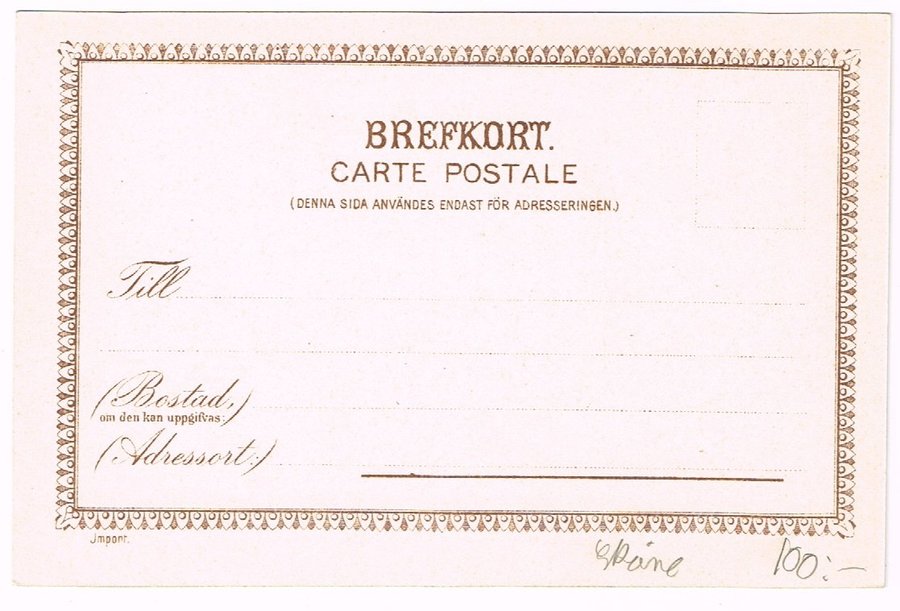 BREFKORT.
CARTE POSTALE
(DENNA SIDA ANVÄNDES ENDAST FÖR ADRESSERINGEN.)
Till
(Bostad,)
om den kan uppgifvas:
(Adressort:)
Import.
Skåne 100:-